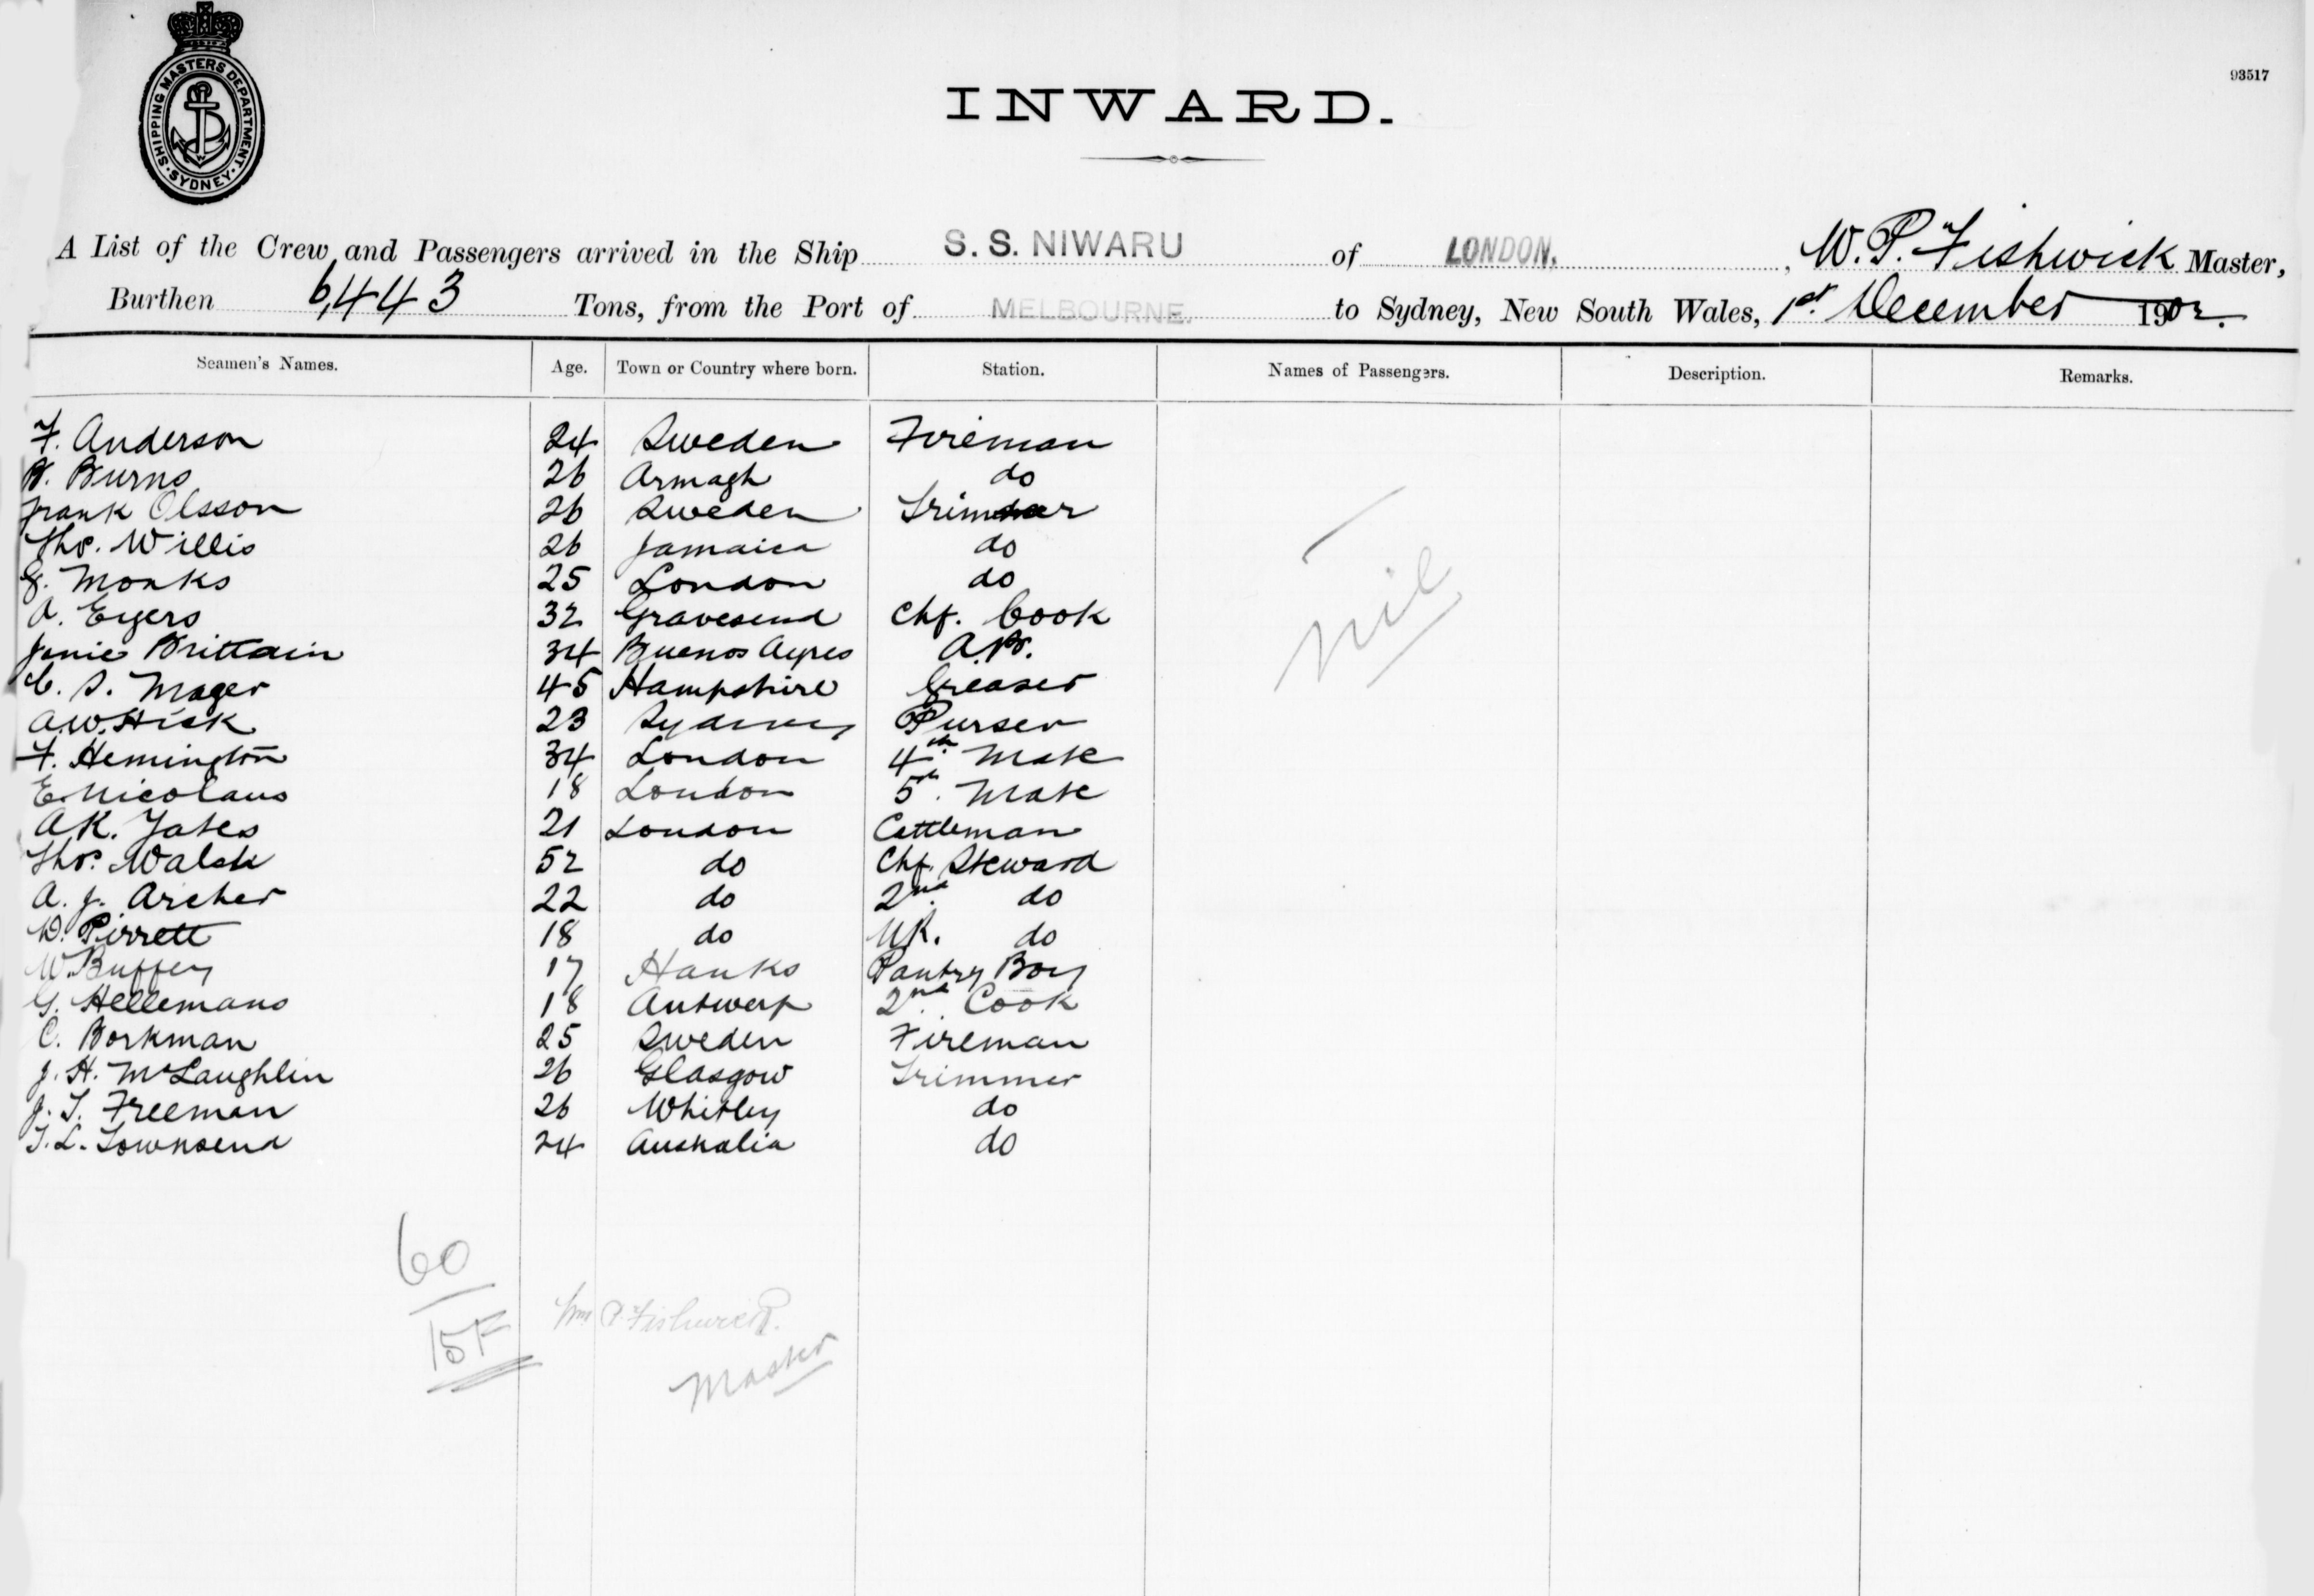 SHIPPING MASTERS DEPARTMENT
SYDNEY
93517
INWARD.
A List of the Crew and Passengers arrived in the Ship S. S. NIWARU of LONDON, W. P. Fishwick Master,
Burthen 6,443 Tons, from the Port of MELBOURNE. to Sydney, New South Wales, 1st December 1902.
Seamen's Names. Age. Town or Country where born. Station. Names of Passengers. Description. Remarks.
F. Anderson 24 Sweden Fireman
B. Burns 26 Armagh do
Frank Olsson 26 Sweden Trimmer
Thos. Willis 26 Jamaica do
G. Monks 25 London do
A. Eyers 32 Gravesend Chf. Cook
Brittain 34 Buenos Ayres A.B.
C. S. Mager 45 Hampshire Greaser
A.W. Hick 23 Sydney Purser
F. Hemington 34 London 4th Mate
E. Nicolaus 18 London 5th Mate
A.K. Yates 21 London Cattleman
Thos. Walsh 52 do Chf. Steward
A. J. Archer 22 do 2nd. do
D. Pirrett 18 do do
W. Buffey 17 Pantry Boy
G. Hellemans 18 Antwerp 2nd. Cook
C. Borkman 25 Sweden Fireman
J. H. McLaughlin 26 Glasgow Trimmer
J. T. Freeman 26 Whitley do
T. L. Townsend 24 Australia do
Nil
60
15F
Wm P. Fishwick.
Master